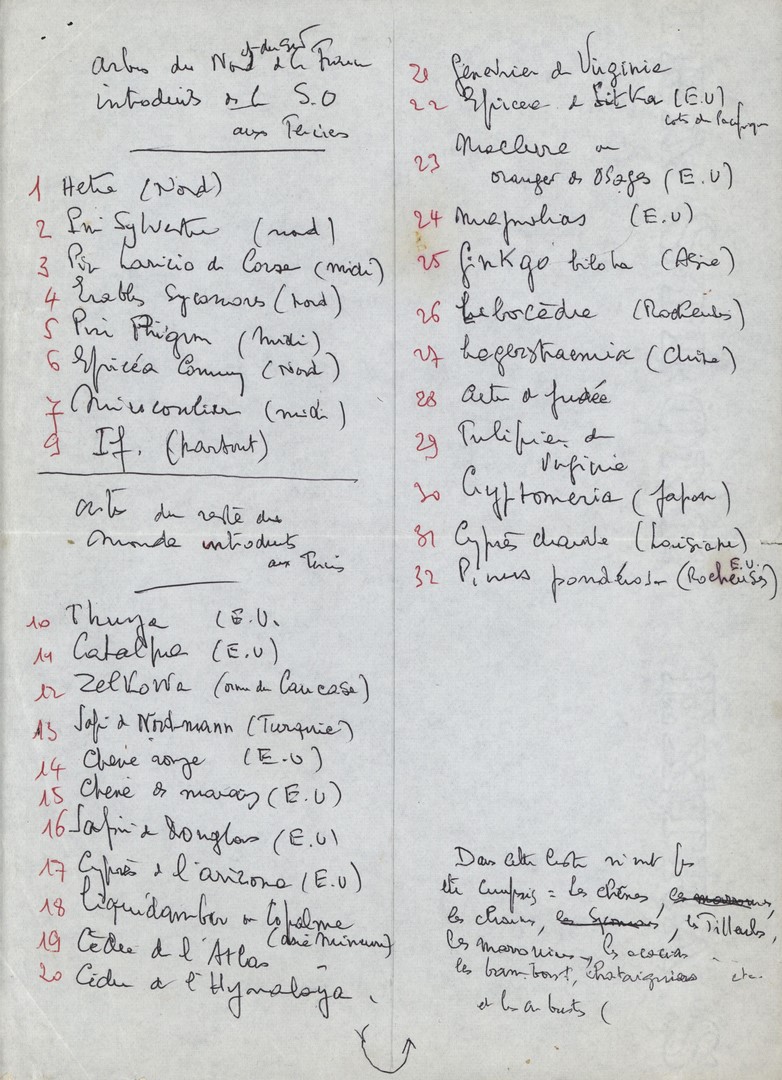 arbres du Nord et du Sud de la France
introduits ds le S.O
aux Terriers
1 Hetre (Nord)
2 Pin Sylvestre (nord)
3 Pin Laricio de Corse (midi)
4 Erables Sycomores (Nord)
5 Pin Phignon (midi)
6 Epicéa Commun (Nord)
7 Micocoulier (midi)
9 If. (partout)
arbres du reste du
monde introduits
aux
10 Thuya (E.U.
11 Catalpa (E.U)
12 Zelkowa (orme du Caucase)
13 Sapin de Nordmann (Turquie)
14 Chene rouge (E.U)
15 Chene des marais (E.U)
16 Sapin de Douglas (E.U)
17 Cyprès de l'arizona (E.U)
18 Liquidambar ou Copalme
(Asie Mineure)
19 Cèdre de l'Atlas
20 Cèdre de l'Hymalaÿa.
21 Genevrier de Virginie
22 Epicea de Sitka (E.U)
cote du Pacifique
23 Maclura ou
oranger des Osages (E.U)
24 magnolias (E.U)
25 Ginkgo biloba (Asie)
26 Libocèdre (Rocheuses)
27 Lagerstraemia (Chine)
28 de Judée
29 Tulipier de
Virginie
30 Cryptomeria (Japon)
31 Cyprès chauve (Louisiane)
32 Pinus pondérosa (Rocheuses E.U.)
Dans cette liste n'ont pas
été compris = les chênes, les marronniers,
les charmes, les Sycomores, les Tilleuls,
les marronniers, les acacias
les bambous, chataigniers etc.
et les arbustes (